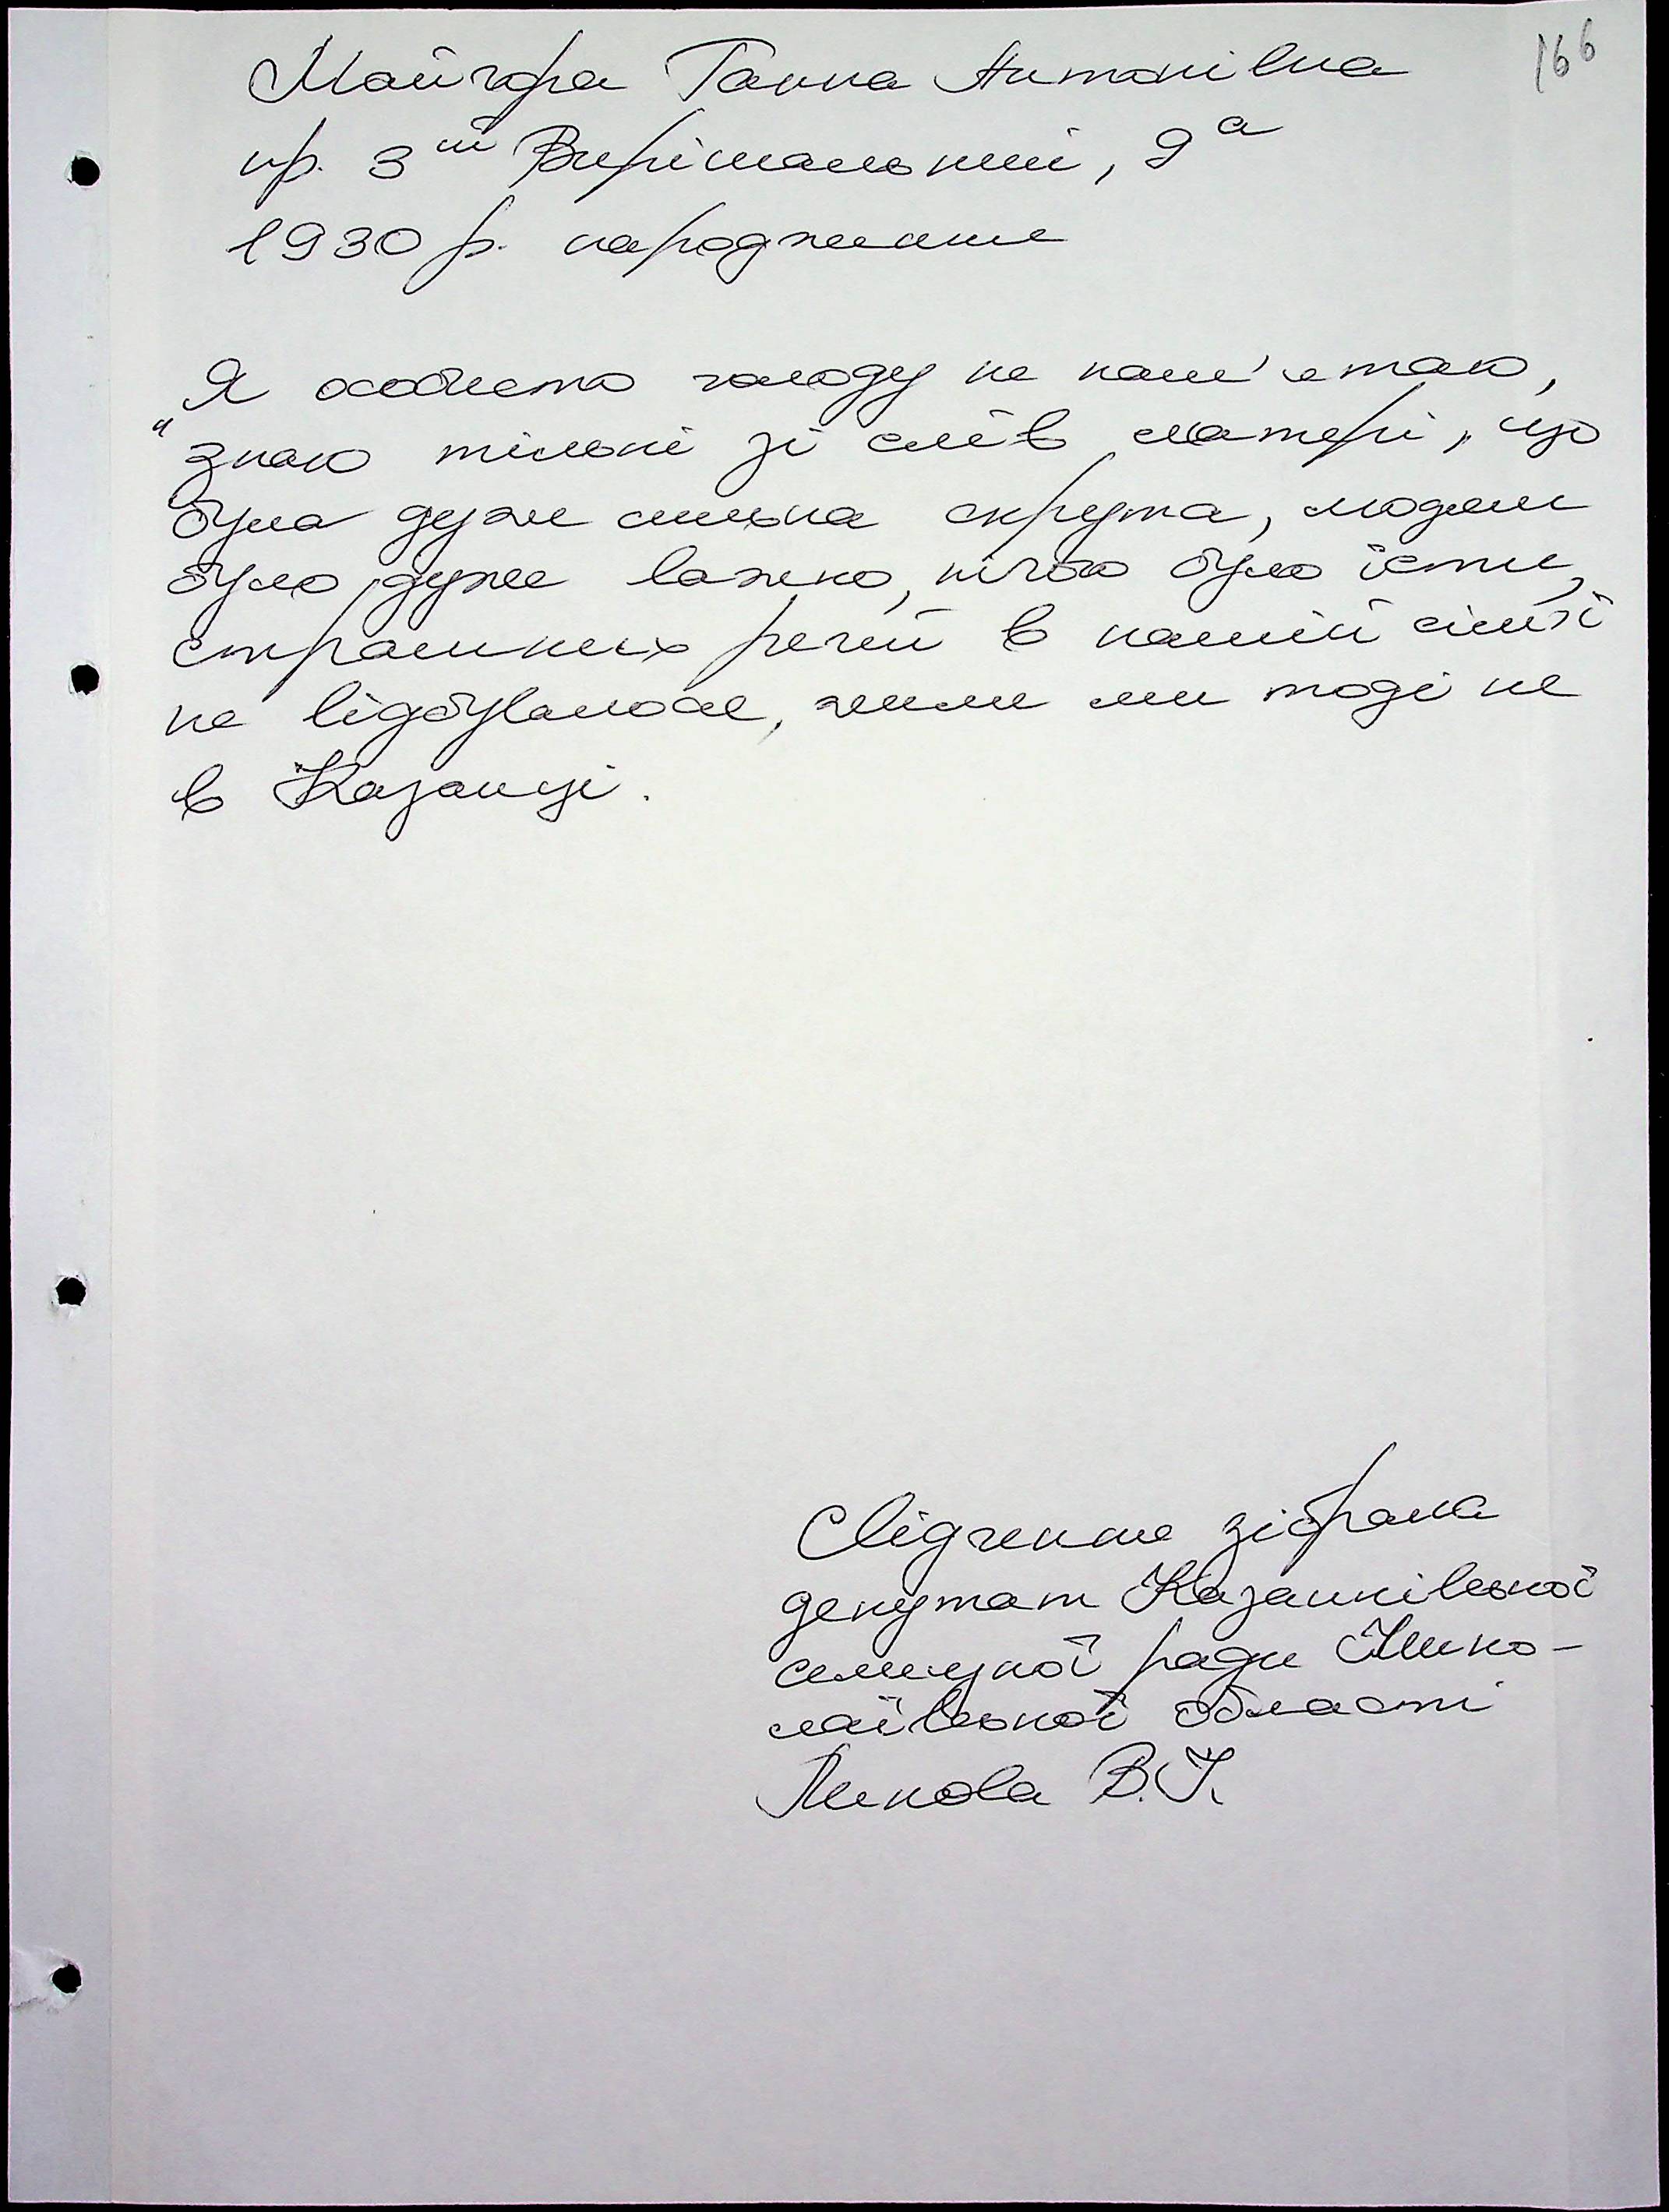 166
Майгра Ганна Антонівна
пр. 3ій Вирішальний, 9а
1930 р. народження
Я особисто голоду не пам'ятаю,
знаю тільки зі слів матері, що
була дуже сильна скрута, людям
було дуже важко, нічого було їсти,
страшних речей в нашій сім'ї
не відбувалося, жили ми тоді не
в Казанці.
Свідчення зібрала
депутат Казанківської
селищної ради Мико-
лаївської області
В.І.